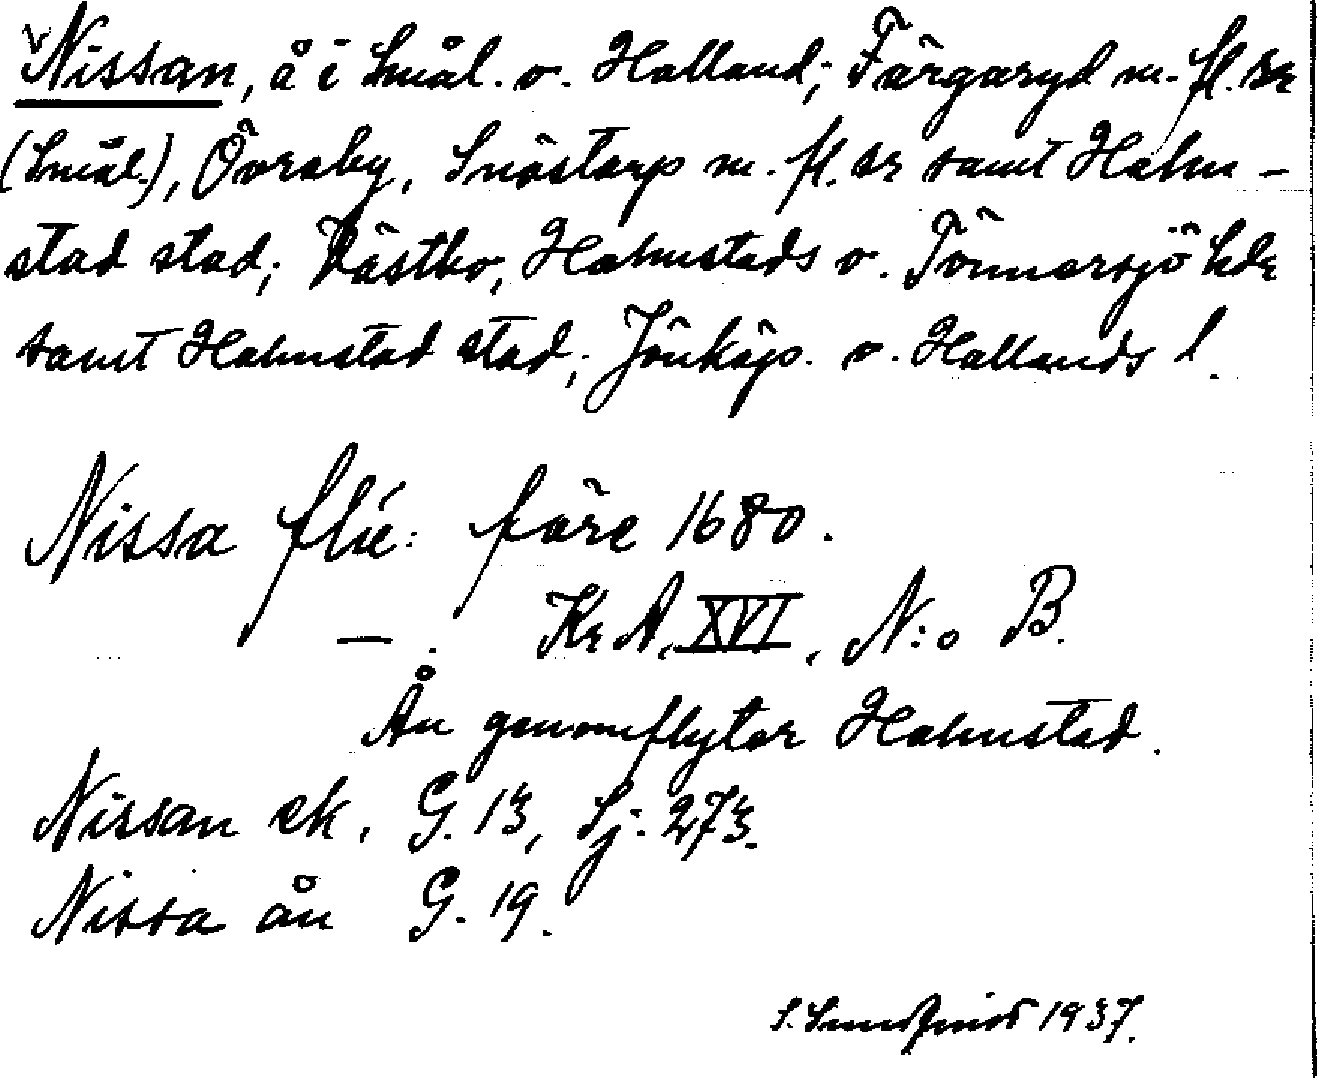 v Nissan, å i Smål. o. Halland; Färgaryd m. fl. snr
(Smål.), Övraby, Snöstorp m. fl. snr samt Halm-
stad stad; Västbo, Halmstads o. Tönnersjö hdr
samt Halmstad stad; Jönköp. o. Hallands l.
Nissa flú: före 1680.
— . Kr A, XVI, N:o B.
Ån genomflyter Halmstad.
Nissan ek. G. 13, Sj. 273.
Nissa ån G. 19.
S. 1937.